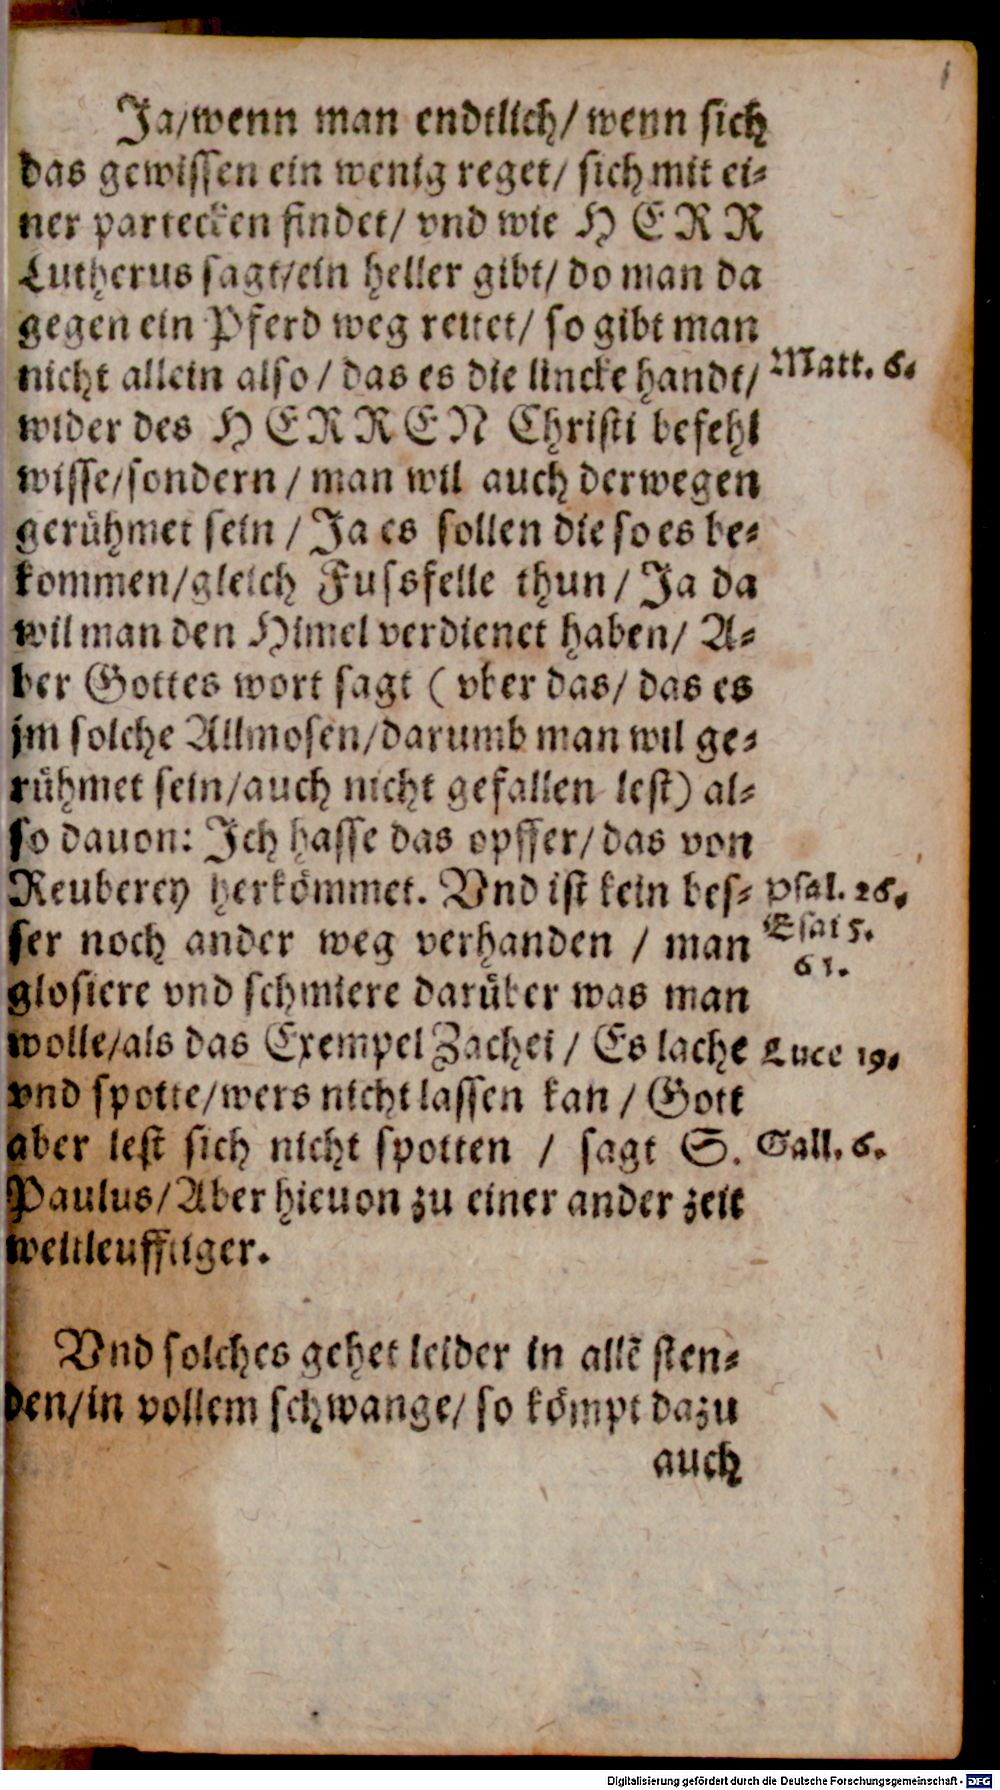 Ja/wenn man endtlich/ wenn sich
das gewissen ein wenig reget/ sich mit ei-
ner partecken findet/ vnd wie HERR
Lutherus sagt/ein heller gibt/ do man da
gegen ein Pferd weg reitet/ so gibt man
nicht allein also / das es die lincke handt/
Matt. 6.
wider des HERREN Christi befehl
wisse/sondern / man wil auch derwegen
gerühmet sein / Ja es sollen die so es be-
kommen/gleich Fussfelle thun / Ja da
wil man den Himel verdienet haben/ A-
ber Gottes wort sagt ( vber das/ das es
jm solche Allmosen/darumb man wil ge-
rühmet sein/auch nicht gefallen lest) al-
so dauon: Ich hasse das opffer/ das von
Reuberey herkömmet. Vnd ist kein bes-
Psal. 26.
ser noch ander weg verhanden / man
Esai 5.
61.
glosiere vnd schmiere darüber was man
wolle/als das Exempel Zachei / Es lache
Luce 19.
vnd spotte/wers nicht lassen kan / Gott
aber lest sich nicht spotten / sagt S.
Gall. 6.
Paulus/ Aber hieuon zu einer ander zeit
weitleufftiger.
Vnd solches gehet leider in allē sten-
den/in vollem schwange/ so kömpt dazu
auch
Digitalisierung gefördert durch die Deutsche Forschungsgemeinschaft - DFG